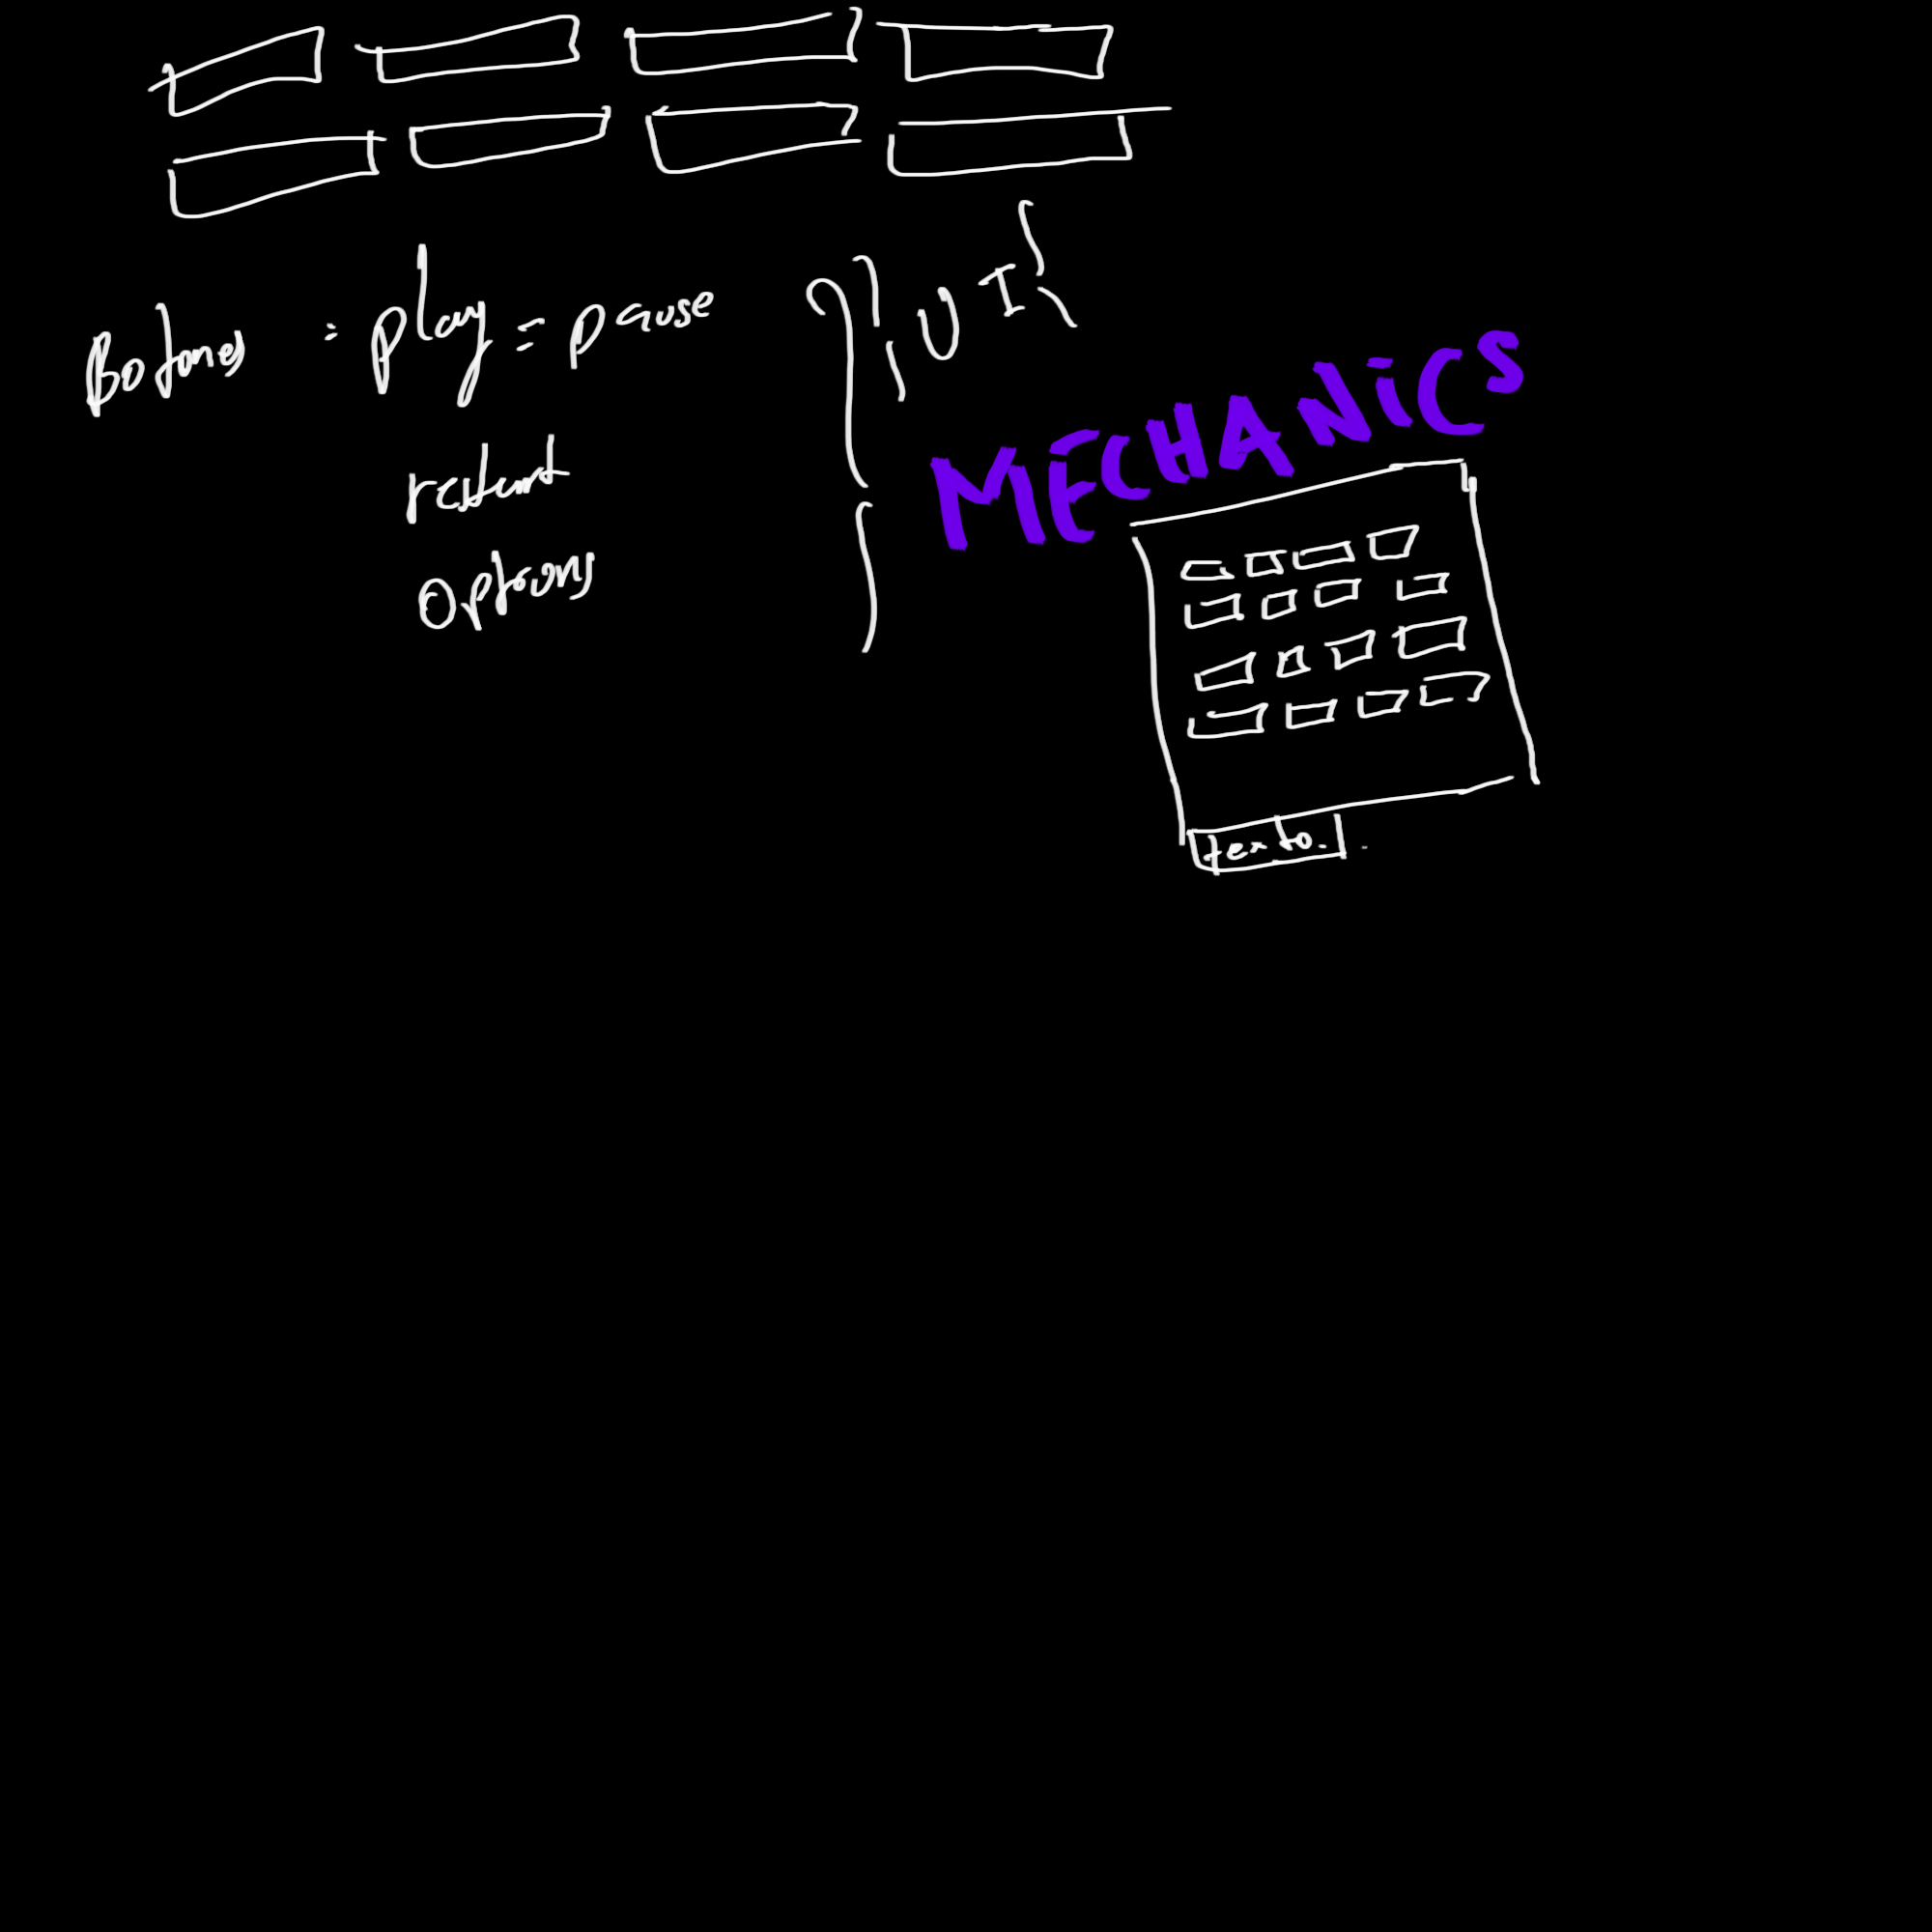 Botones : play = pause
restart
Options
MECHANICS
texto.